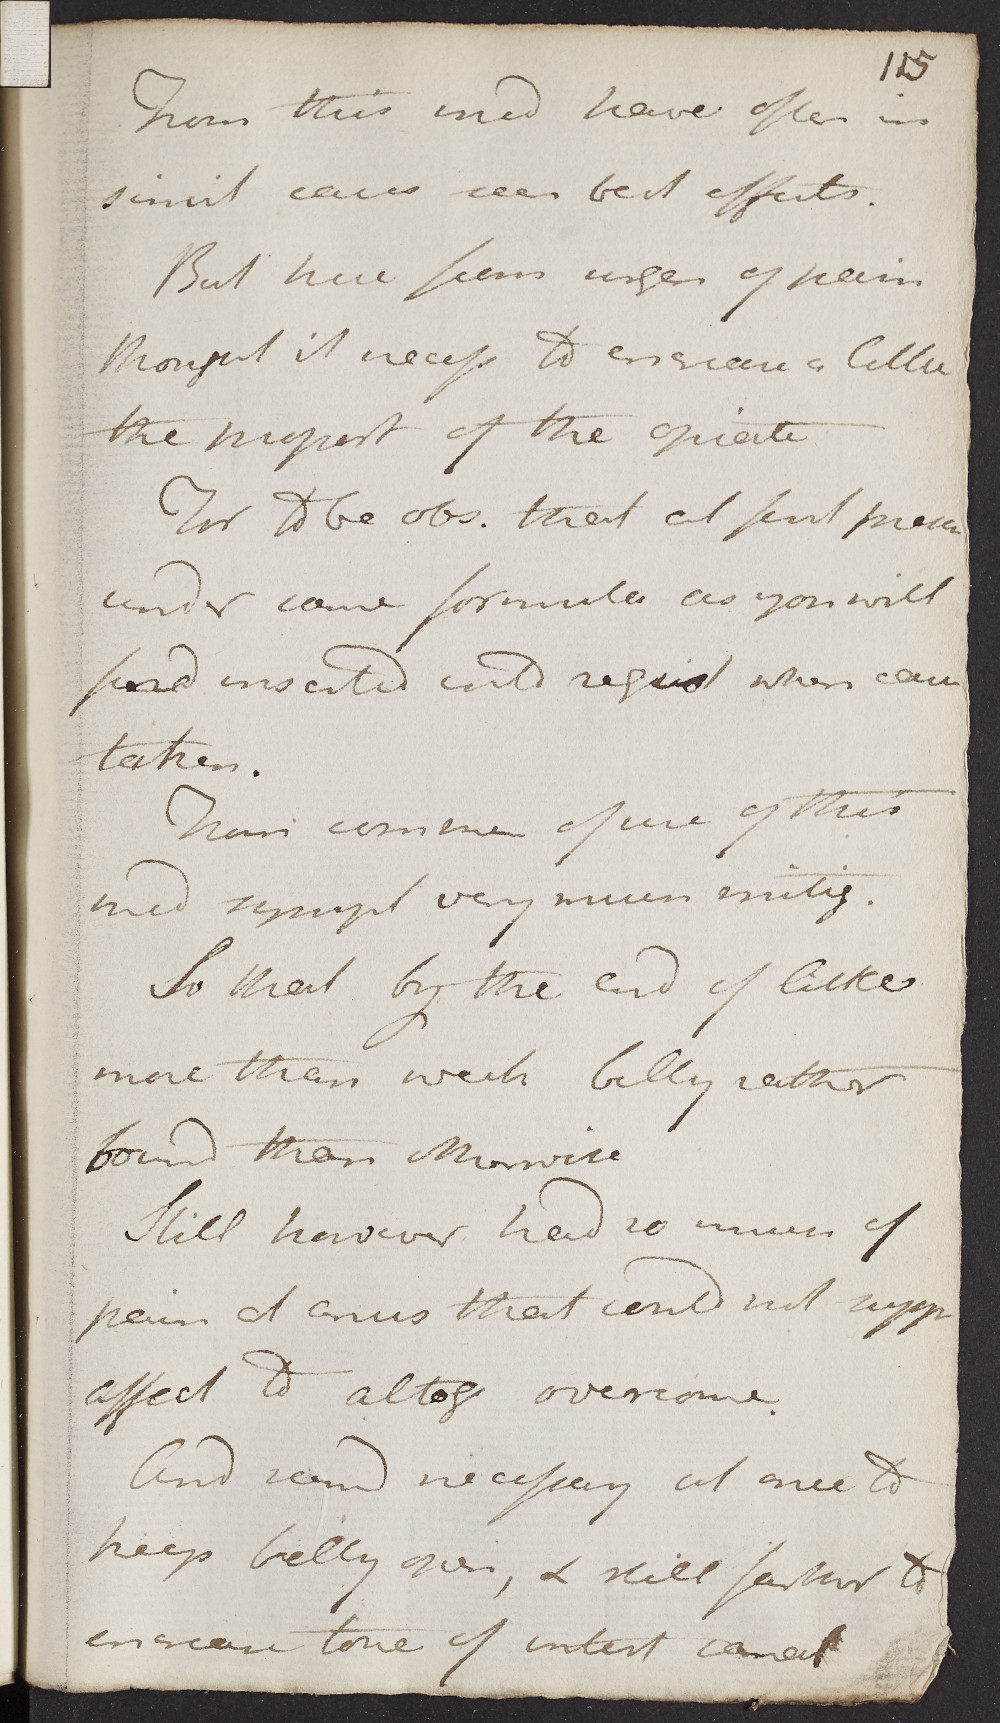 115
From this med have often in
simil cases seen best effects.
But here from urgen of pain
thought it necess to encrease a little
the proport of the opiate
For to be obs. that at first prescr
under same formula as you will
find inserted into regist when case
taken.
From commen of use of this
med sympt very much mitig.
So that by the end of little
more than week belly rather
bound than otherwise
Still however had so much of
pain at anus that could not supp
affect to altog overcome.
And seemd necessary at once to
keep belly open, & still farther to
encrease tone of intest canal